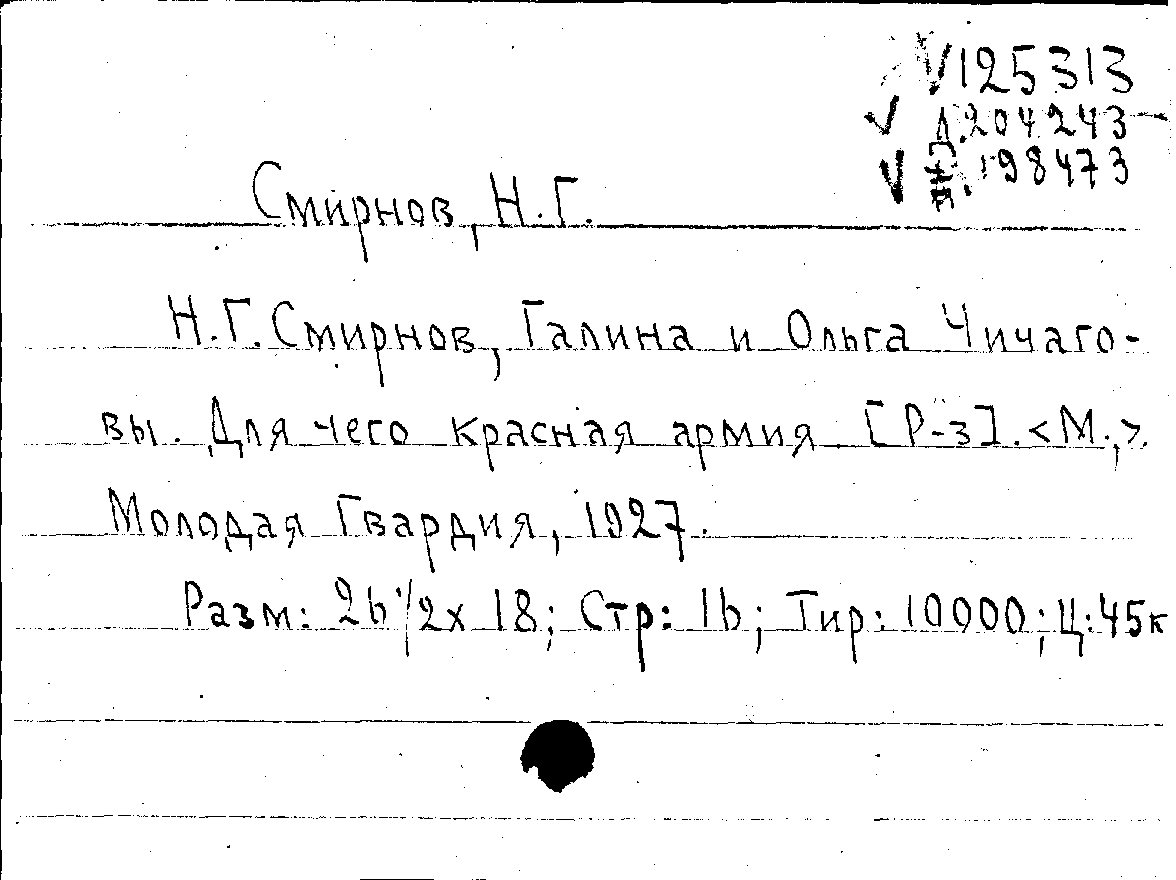 V125313
✓ Д.204243
✓ 198473
Смирнов, Н.Г.
Н.Г.Смирнов, Галина и Ольга Чичаго-
вы. Для чего красная армия. [Р-з].<М.,>.
Молодая Гвардия, 1927.
Разм: 26 1/2 х 18; Стр: 16; Тир: 10000; Ц: 45к